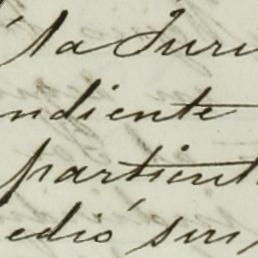 la Juri
ndiente
partient
edió sus